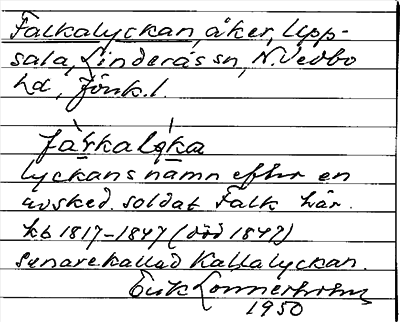 Falkalyckan, åker, Upp-
sala, Linderås sn, N. Vedbo
hd, Jönk. l.
fàrkalỳka
lyckans namn efter en
avsked. soldat Falk här.
kb 1817-1847 (död 1847)
senare kallad Kallalyckan.
Erik Lönnerholm
1950